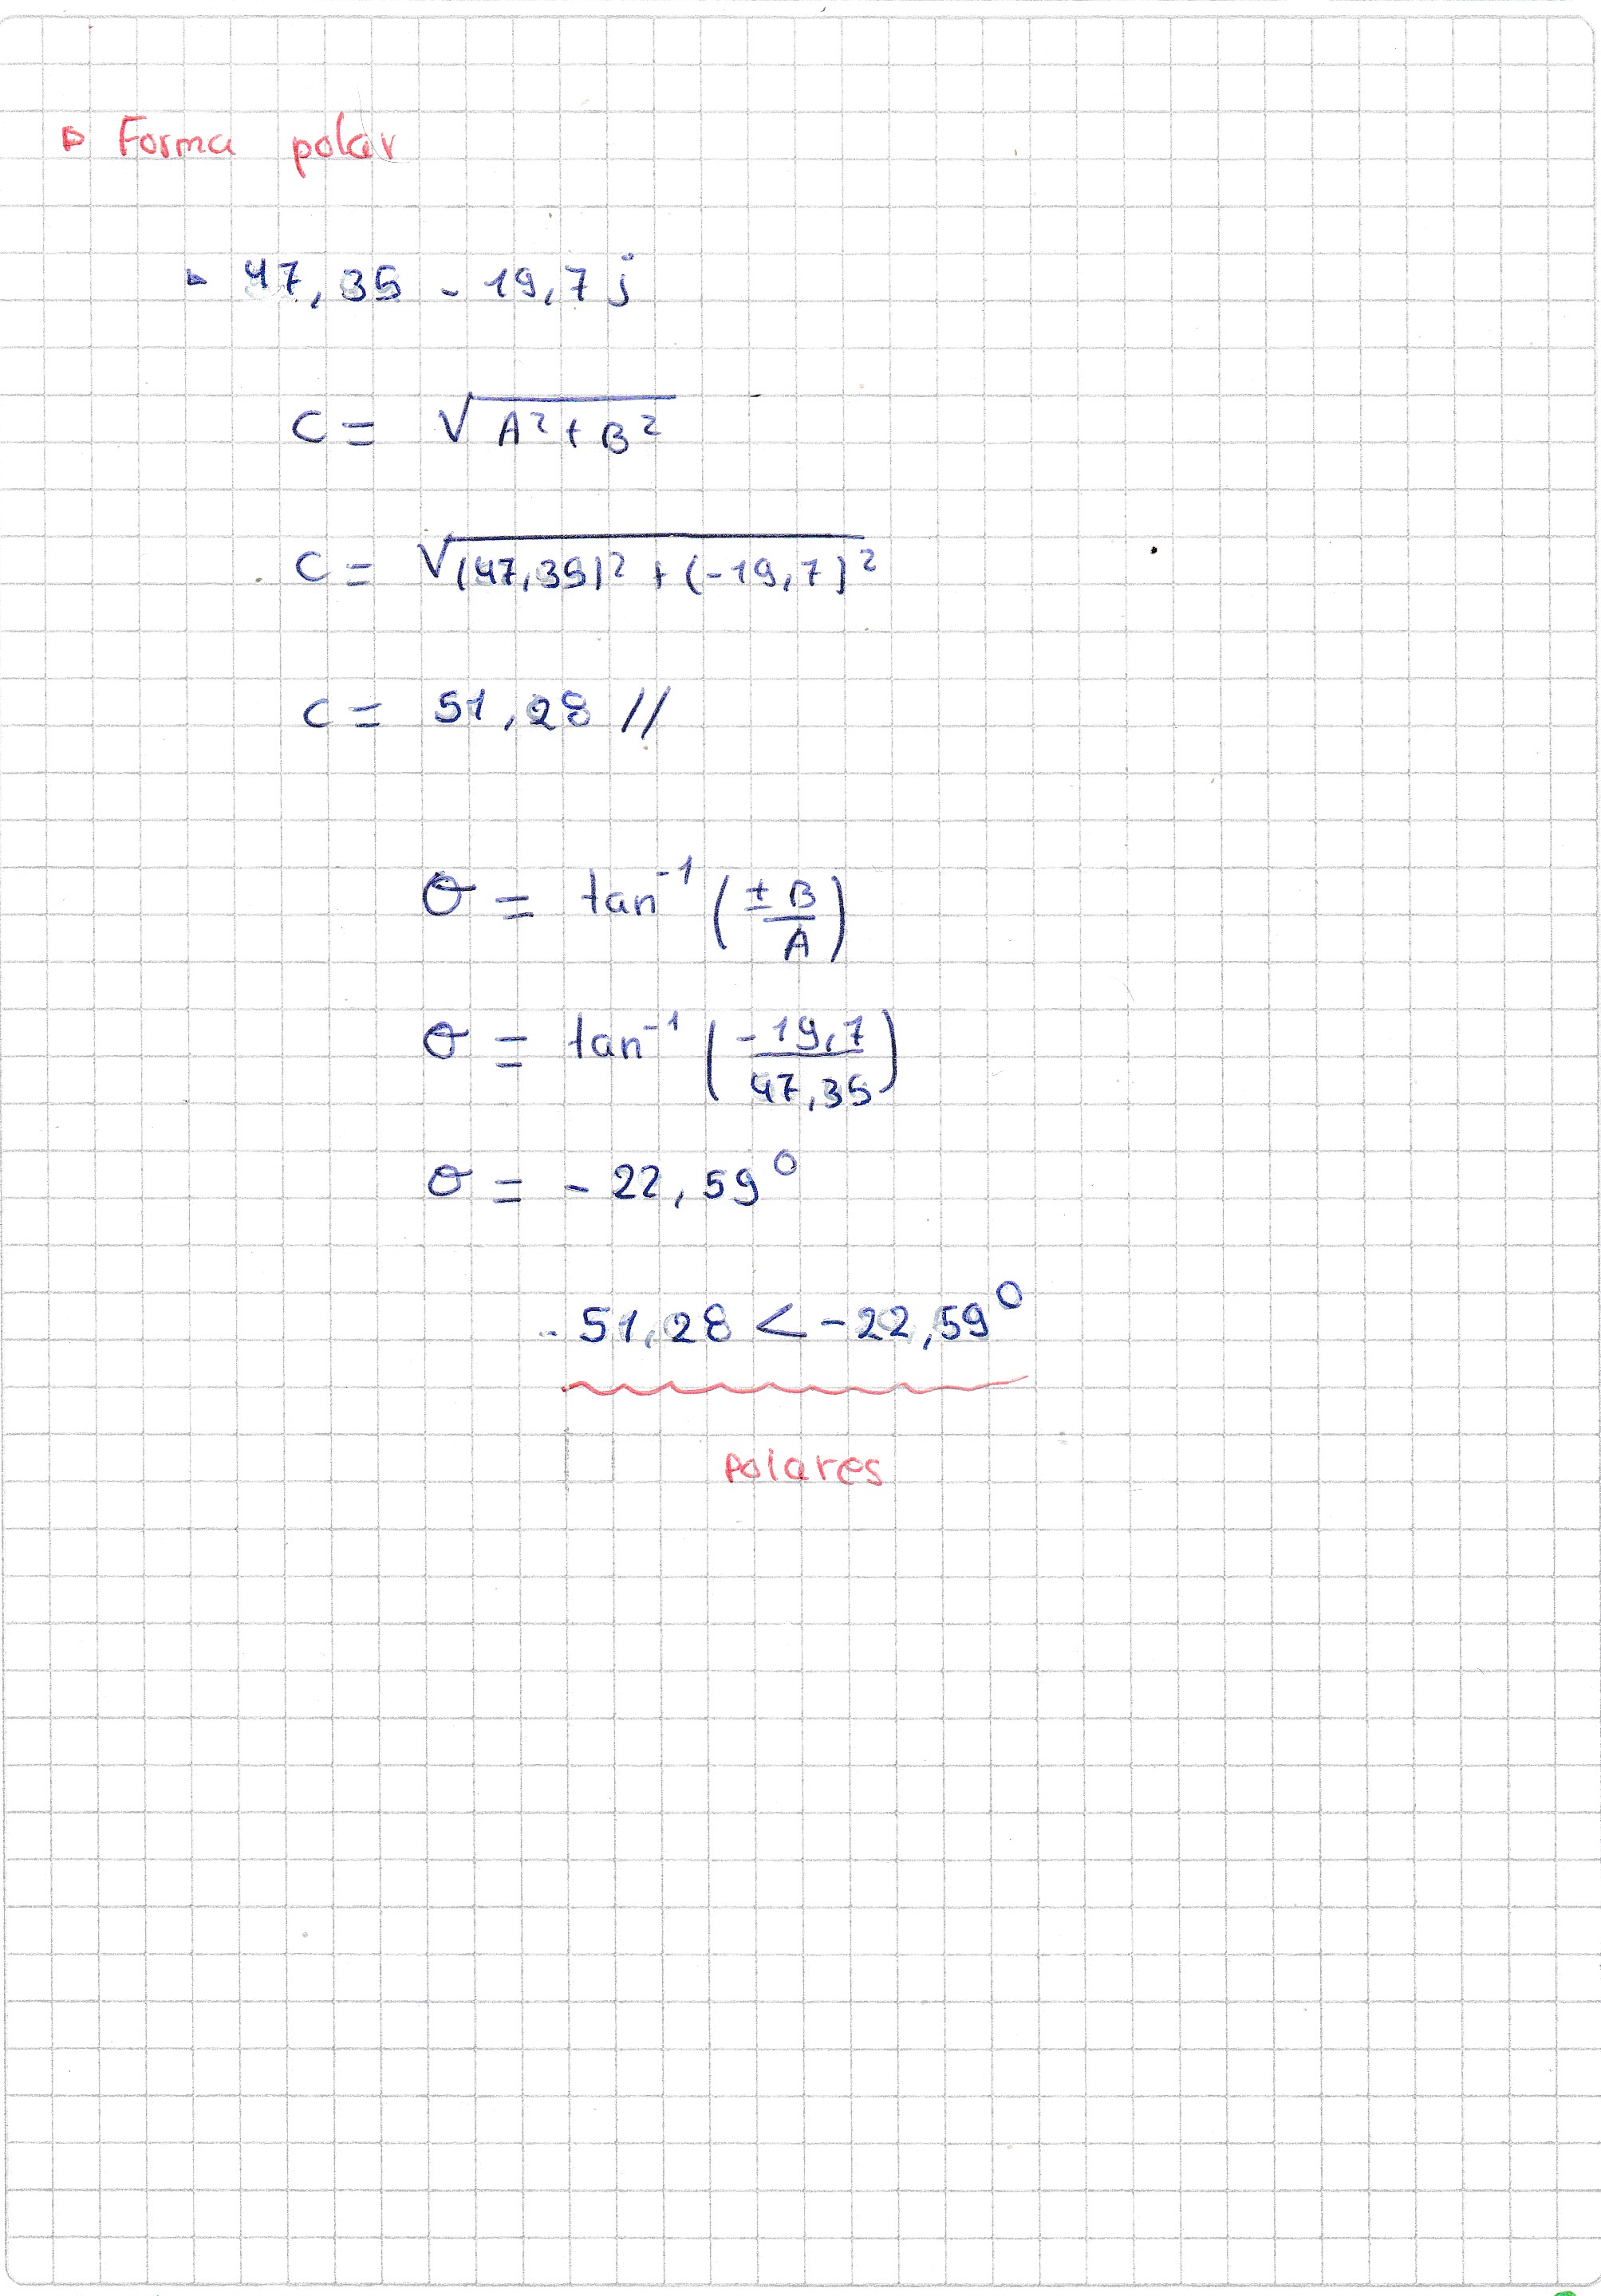 ▷ Forma polar
▷ 47,35 - 19,7 j
C = √(A² + B²)
C = √((47,35)² + (-19,7)²)
C = 51,28 //
θ = tan⁻¹ (± B / A)
θ = tan⁻¹ (-19,7 / 47,35)
θ = - 22,59°
51,28 < -22,59°
polares